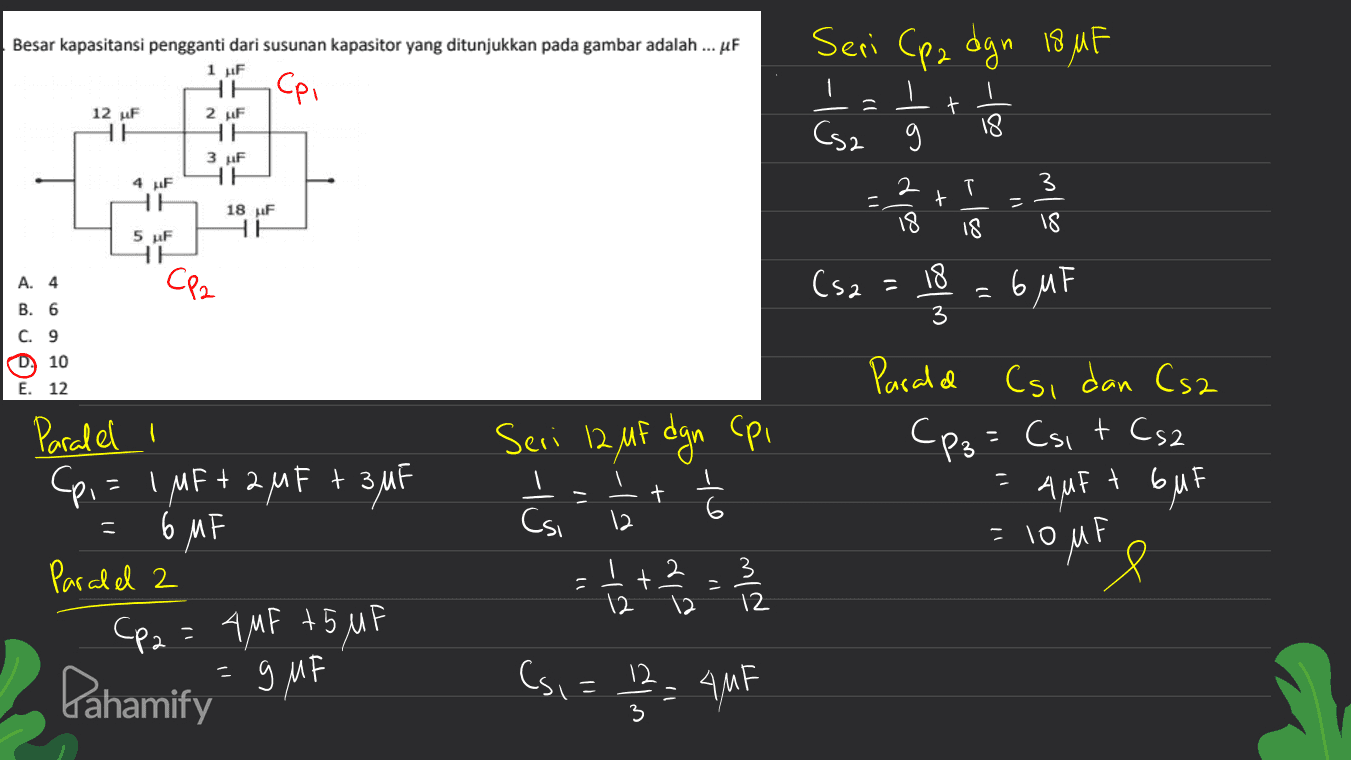 . Besar kapasitansi pengganti dari susunan kapasitor yang ditunjukkan pada gambar adalah ... μF
1 μF
Cp₁
12 μF
2 μF
3 μF
4 μF
18 μF
5 μF
Cp₂
A. 4
B. 6
C. 9
D. 10
E. 12
Paralel 1
Cp₁ = 1 μF + 2 μF + 3 μF
= 6 μF
Paralel 2
Cp₂ = 4 μF + 5 μF
= 9 μF
Pahamify
Seri 12 μF dgn Cp₁
1/Cs₁ = 1/12 + 1/6
= 1/12 + 2/12 = 3/12
Cs₁ = 12/3 = 4 μF
Seri Cp₂ dgn 18 μF
1/Cs₂ = 1/9 + 1/18
= 2/18 + 1/18 = 3/18
Cs₂ = 18/3 = 6 μF
Paralel Cs₁ dan Cs₂
Cp₃ = Cs₁ + Cs₂
= 4 μF + 6 μF
= 10 μF